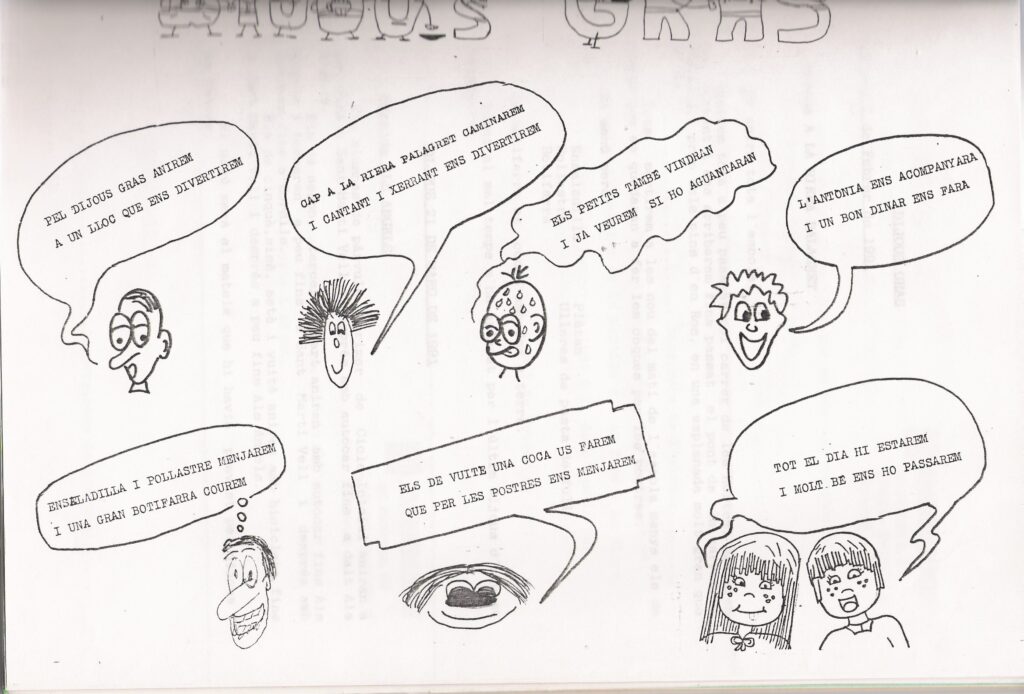 DIJOUS GRAS
PEL DIJOUS GRAS ANIREM
A UN LLOC QUE ENS DIVERTIREM
CAP A LA RIERA PALAGRET CAMINAREM
I CANTANT I XERRANT ENS DIVERTIREM
ELS PETITS TAMBÉ VINDRAN
I JA VEUREM SI HO AGUANTARAN
L'ANTONIA ENS ACOMPANYARA
I UN BON DINAR ENS FARA
ENSALADILLA I POLLASTRE MENJAREM
I UNA GRAN BOTIFARRA COUREM
ELS DE VUITE UNA COCA US FAREM
QUE PER LES POSTRES ENS MENJAREM
TOT EL DIA HI ESTAREM
I MOLT BE ENS HO PASSAREM